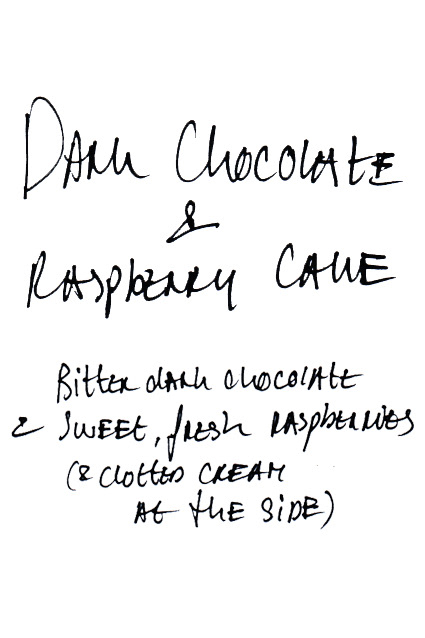 Dark Chocolate
&
Raspberry Cake
Bitter dark chocolate
& sweet, fresh raspberries
(& clotted cream
at the side)